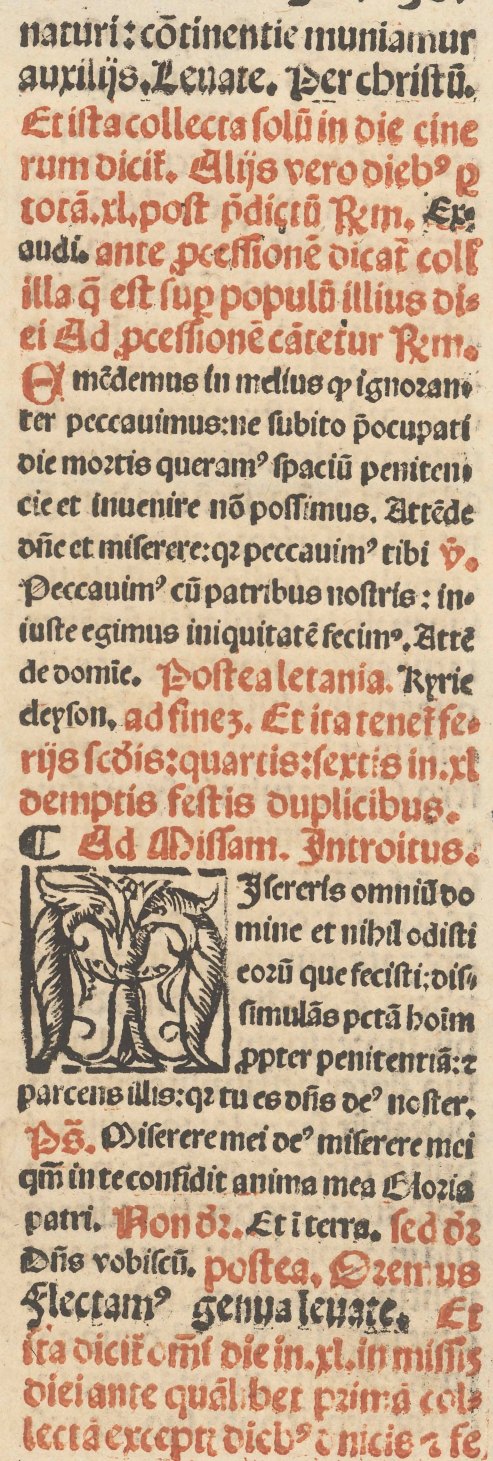 naturi: cõtinentie muniamur
auxilijs. Leuate. Per christũ.
Et ista collecta solũ in die cine
rum dicit̃. Alijs vero dieb⁹ ꝑ
totã .xl. post p̃dictũ ℞m. Ex
audi. ante ꝓcessionẽ dicat̃ coll̃
illa q̃ est suꝑ populũ illius di⸗
ei Ad ꝓcessionẽ cãtetur ℞m.
Emẽdemus in melius qꝫ ignoran⸗
ter peccauimus: ne subito p̃ocupati
die mortis queram⁹ spaciũ peniten⸗
cie et inuenire nõ possimus. Attẽde
dñe et miserere: qꝛ peccauim⁹ tibi ℣.
Peccauim⁹ cũ patribus nostris: in⸗
iuste egimus iniquitatẽ fecim⁹. Attẽ
de domiẽ. Postea letania. Kyrie
eleyson. ad fineꝫ. Et ita tenet̃ fe⸗
rijs scđis: quartis: sextis in .xl
demptis festis duplicibus.
¶ Ad Missam. Introitus.
MIsereris omniũ do
mine et nihil odisti
eorũ que fecisti; dis⸗
simulãs pctã hoim
ꝓpter penitentiã: ⁊
parcens illis: qꝛ tu es dñs de⁹ noster.
Ps̃. Miserere mei de⁹ miserere mei
qm̃ in te confidit anima mea Gloria
patri. Non dꝛ̃. Et ĩ terra. sed dꝛ̃
Dñs vobiscũ. postea. Oremus
Flectam⁹ genua leuate. Et
ita dicit̃ omĩ die in .xl. in missis
diei ante quãlibet primã col⸗
lectã exceptꝭ dieb⁹ dnicis ⁊ fe